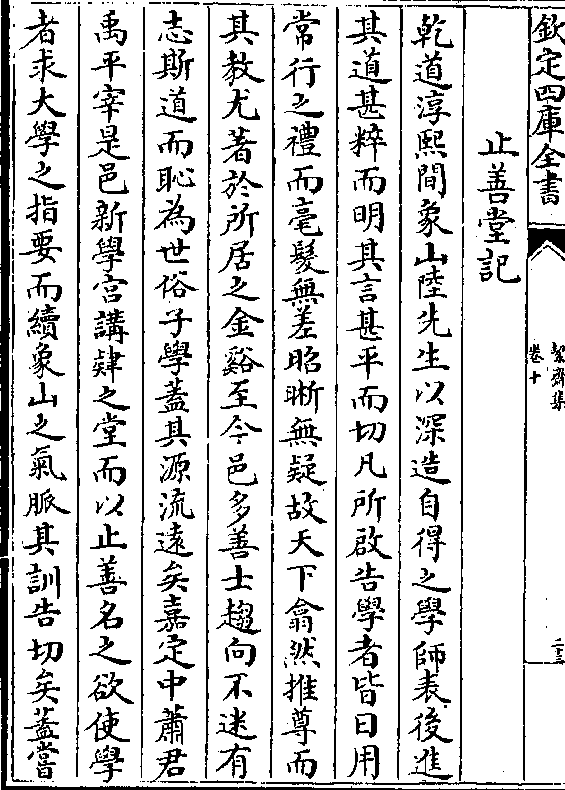 欽定四庫全書
絜齋集
卷十
二十三
止善堂記
乾道淳熙間象山陸先生以深造自得之學師表後進
其道甚粹而明其言甚平而切凡所啟告學者皆日用
常行之禮而毫髮無差昭晰無疑故天下翕然推尊而
其教尤著於所居之金谿至今邑多善士趨向不迷有
志斯道而恥為世俗子學蓋其源流遠矣嘉定中蕭君
禹平宰是邑新學宫講肄之堂而以止善名之欲使學
者求大學之指要而續象山之氣脈其訓告切矣蓋嘗